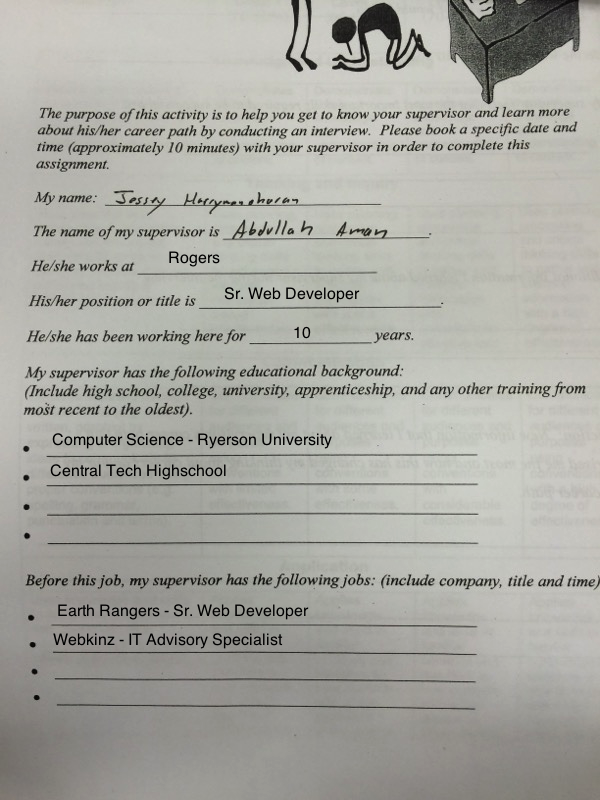 The purpose of this activity is to help you get to know your supervisor and learn more
about his/her career path by conducting an interview. Please book a specific date and
time (approximately 10 minutes) with your supervisor in order to complete this
assignment.
My name: Jessey
The name of my supervisor is Abdullah Aman.
He/she works at Rogers
His/her position or title is Sr. Web Developer.
He/she has been working here for 10 years.
My supervisor has the following educational background:
(Include high school, college, university, apprenticeship, and any other training from
most recent to the oldest).
• Computer Science - Ryerson University
• Central Tech Highschool
•
•
Before this job, my supervisor has the following jobs: (include company, title and time)
• Earth Rangers - Sr. Web Developer
• Webkinz - IT Advisory Specialist
•
•